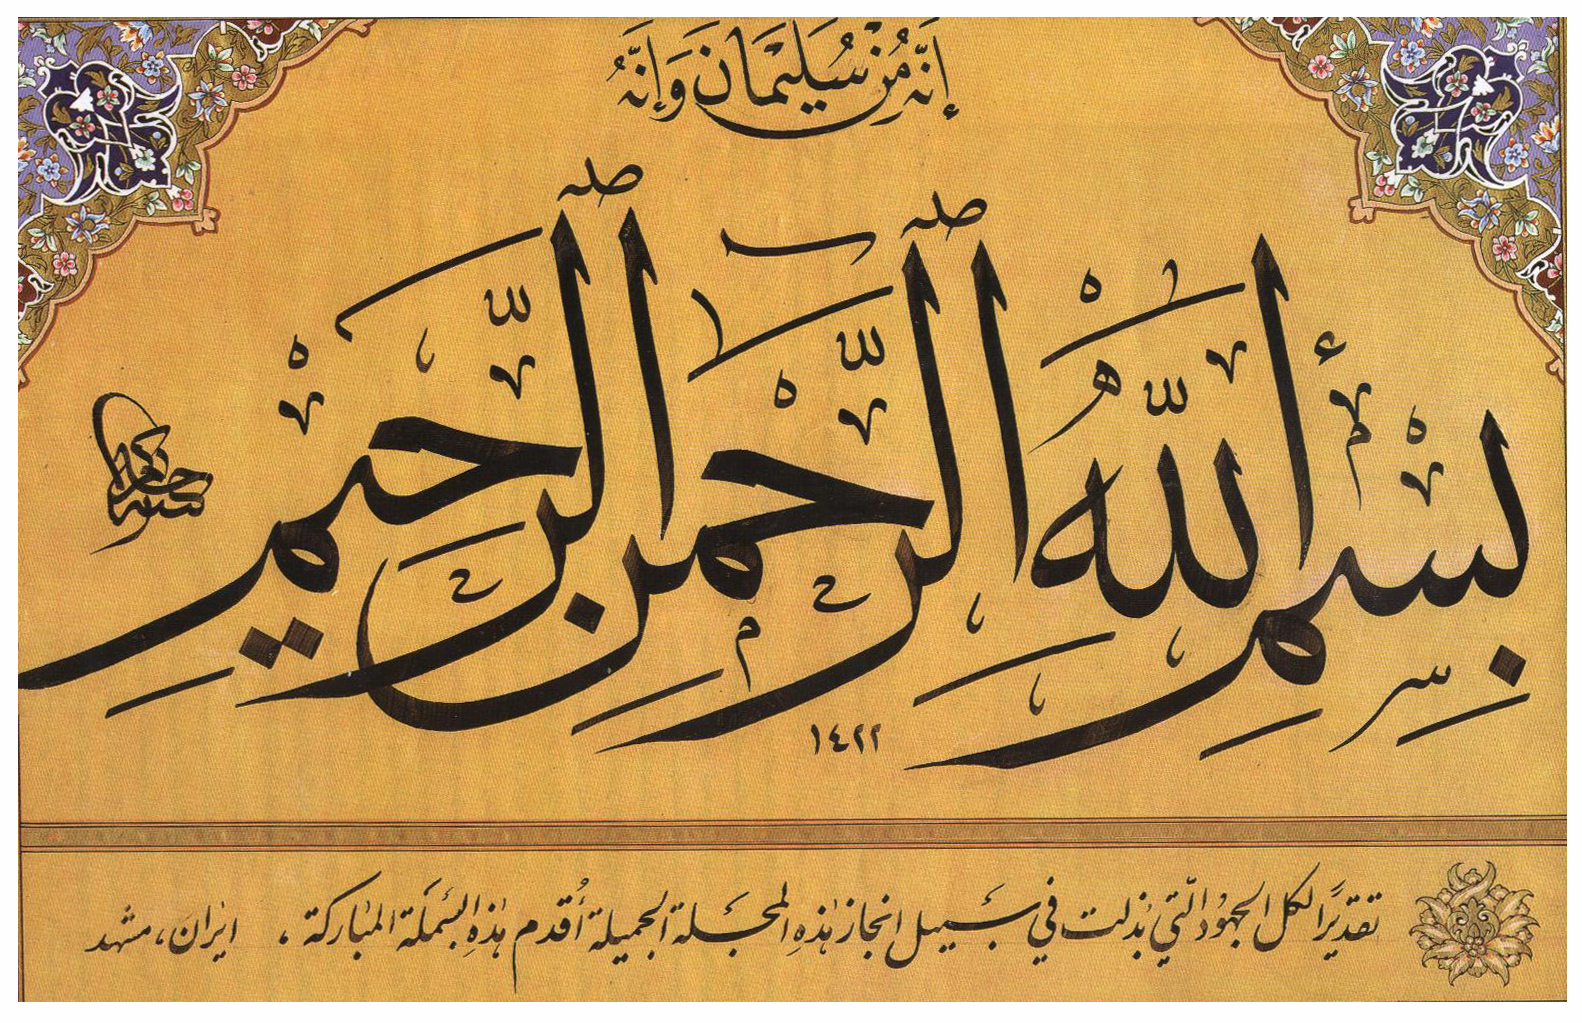 إنّه مِنْ سُلَيْمَانَ وَإنَّهُ
بِسْمِ اللّٰهِ الرَّحْمٰنِ الرَّحِيْمِ
١٤٢٢
تقديرًا لكل الجهود الّتي بُذلت في سَبيل انجاز هٰذِهِ المجَلة الجميلة أُقدم هٰذِهِ البسْمَلَة المبٰاركة . ايرٰان، مشهد